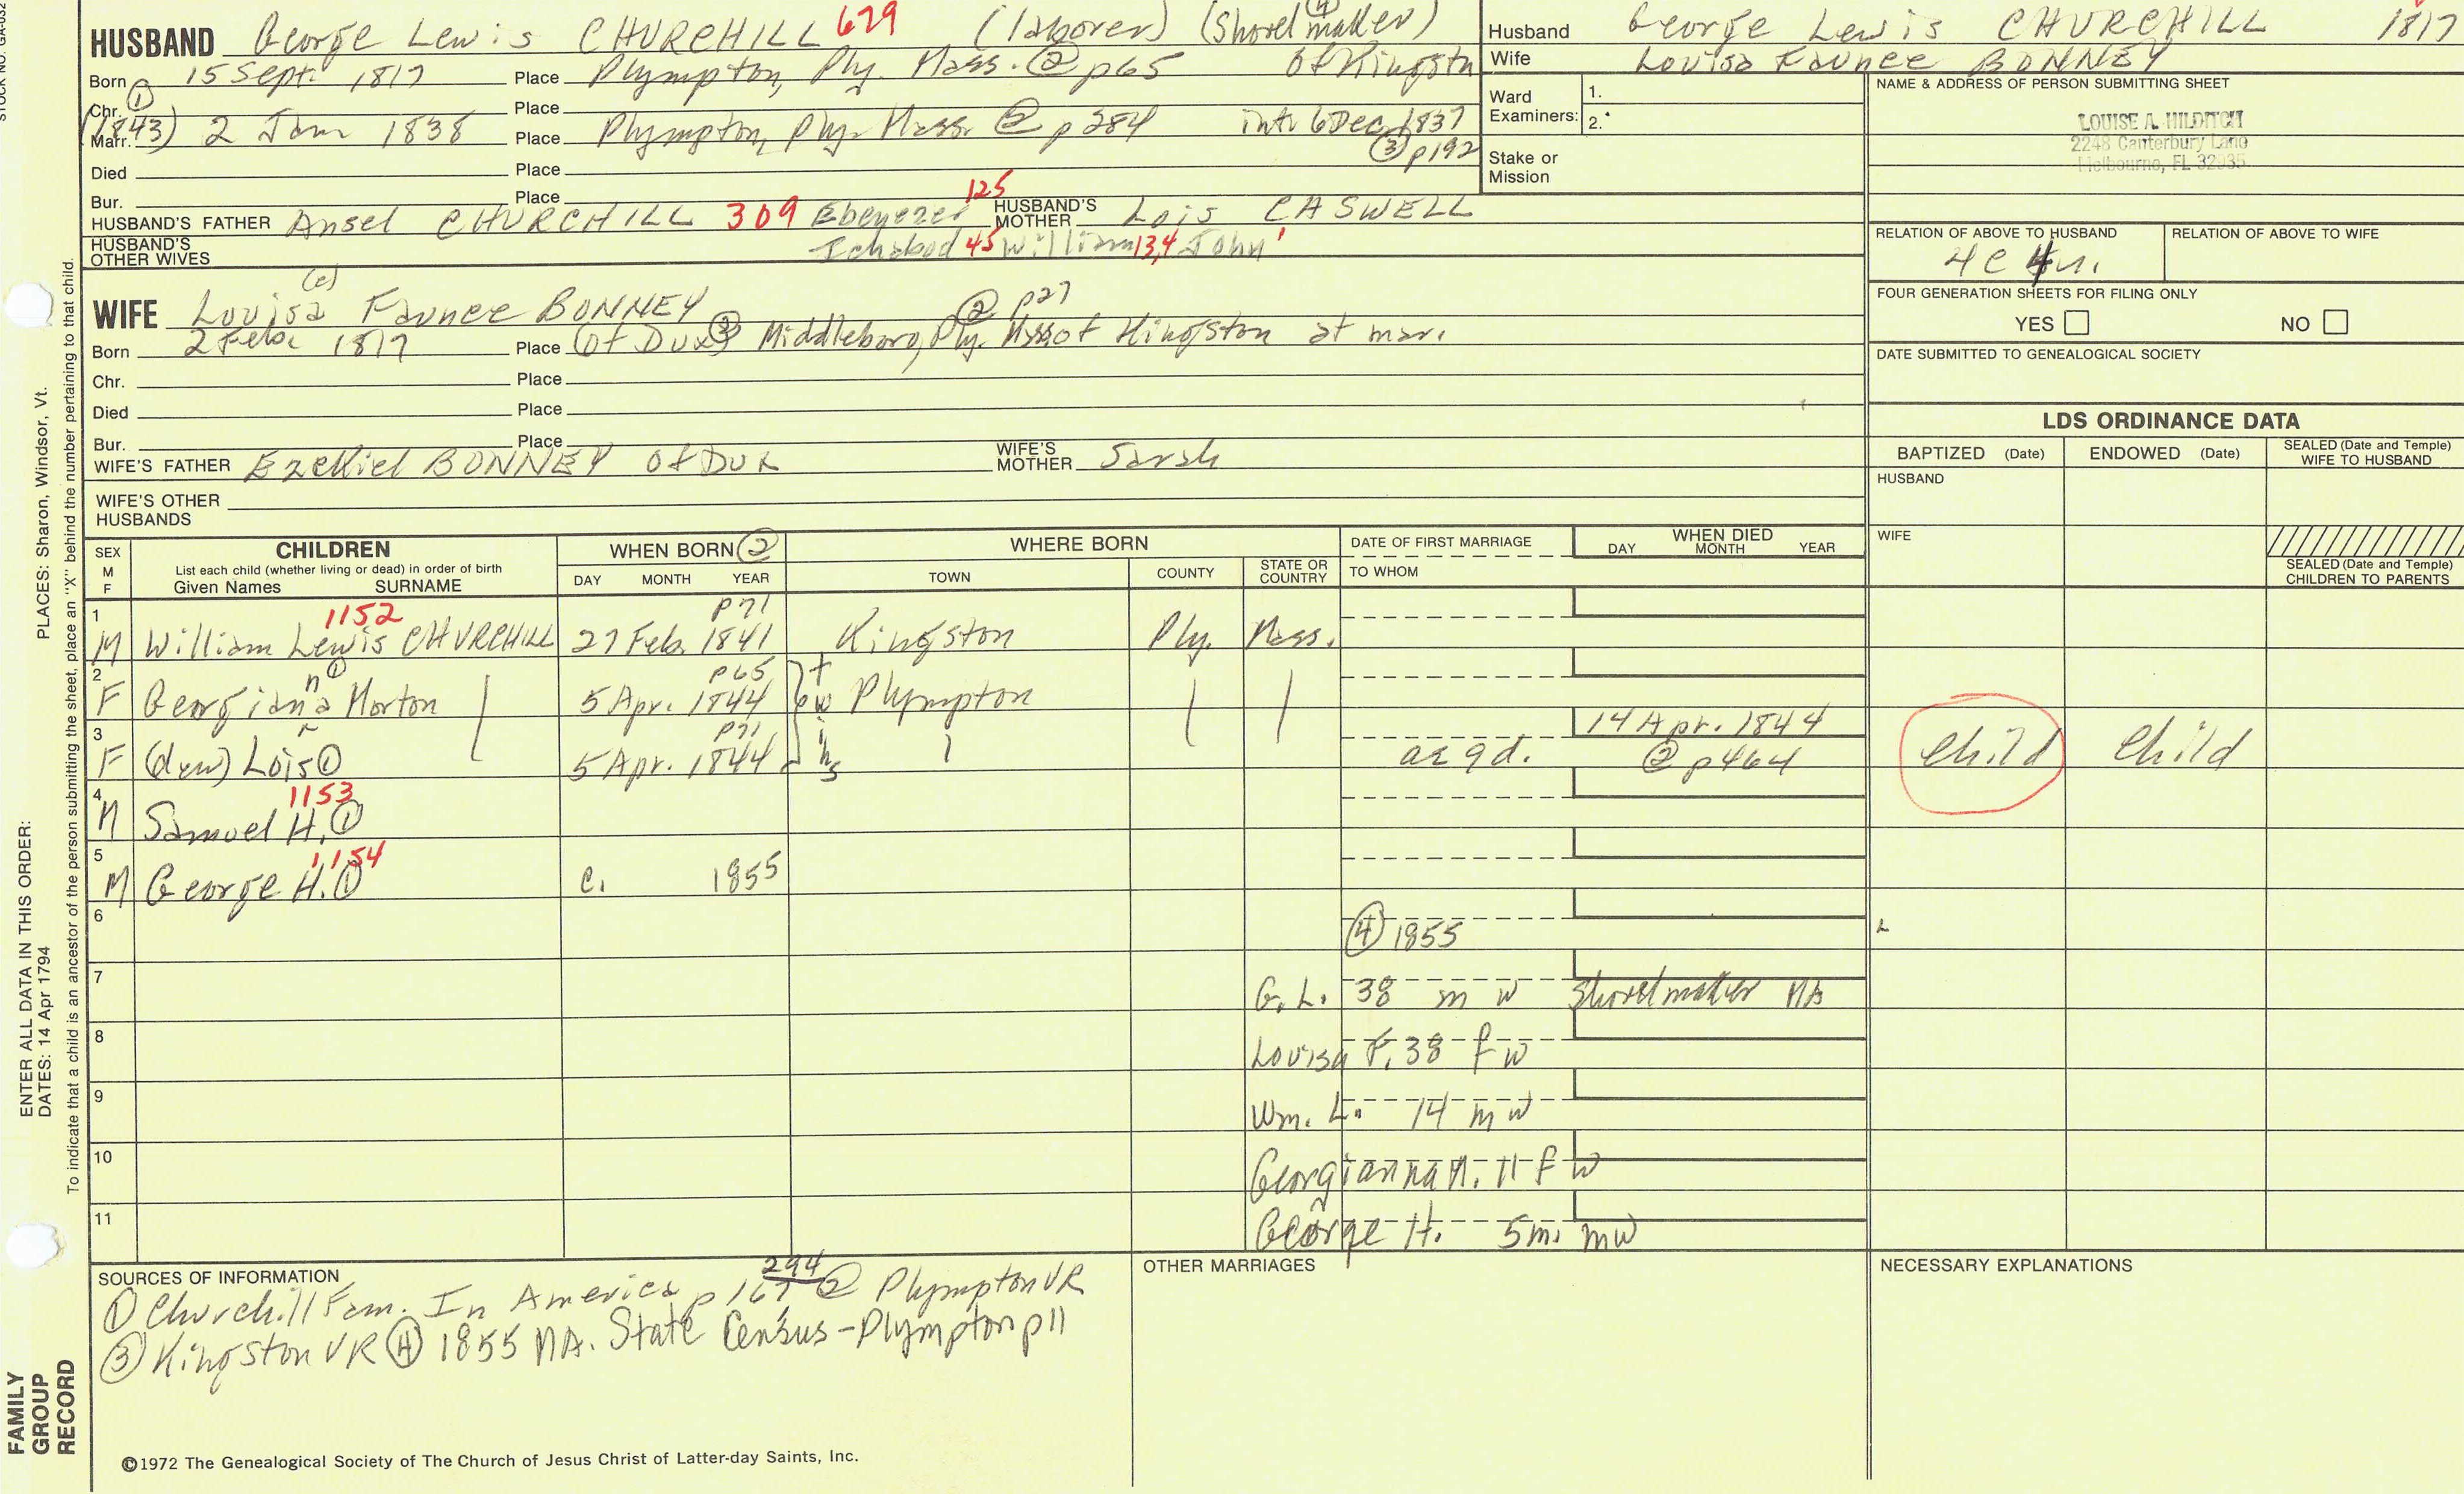 HUSBAND George Lewis CHURCHILL 679 (laborer) (Shovel maker) ④
Born 15 Sept. 1817 Place Plympton, Ply. Mass. ② p65 of Kingstn
Chr. ① Place
(1843) Marr. 2 Jan 1838 Place Plympton, Ply. Mass. ② p284 int. 6 Dec. 1837
③ p192
Died Place
Bur. Place
HUSBAND'S FATHER Ansel CHURCHILL 309 Ebenezer 125 HUSBAND'S MOTHER Lois CASWELL
HUSBAND'S OTHER WIVES Ichabod 45 William 13,4 John 1
Husband George Lewis CHURCHILL 1817
Wife Louisa Faunce BONNEY
Ward Examiners: 1.
2.
Stake or Mission
NAME & ADDRESS OF PERSON SUBMITTING SHEET
LOUISE A. HILDITCH
2248 Canterbury Lane
Melbourne, FL 32935
RELATION OF ABOVE TO HUSBAND
4C 4
RELATION OF ABOVE TO WIFE
FOUR GENERATION SHEETS FOR FILING ONLY
YES NO
DATE SUBMITTED TO GENEALOGICAL SOCIETY
(e)
WIFE Louisa Faunce BONNEY
② p27
Born 2 Feb. 1817 Place (of Dux ③) Middleboro, Ply. Mass. of Kingston at mar.
Chr. Place
Died Place
Bur. Place
WIFE'S FATHER Ezekiel BONNEY of Dux WIFE'S MOTHER Sarah
WIFE'S OTHER HUSBANDS
LDS ORDINANCE DATA
BAPTIZED (Date) ENDOWED (Date) SEALED (Date and Temple) WIFE TO HUSBAND
HUSBAND
WIFE
SEALED (Date and Temple) CHILDREN TO PARENTS
SEX M F
CHILDREN
List each child (whether living or dead) in order of birth
Given Names SURNAME
WHEN BORN ②
DAY MONTH YEAR
WHERE BORN
TOWN COUNTY STATE OR COUNTRY
DATE OF FIRST MARRIAGE
TO WHOM
WHEN DIED
DAY MONTH YEAR
1 1152 p71
M William Lewis CHURCHILL 27 Feb. 1841 Kingston Ply. Mass.
2 n ① p65
F Georgiana Morton 5 Apr. 1844 twins Plympton
3 p71 14 Apr. 1844
F (dau) Lois ① 5 Apr. 1844 ae 9d. ② p464 Child Child
4 1153
M Samuel H. ①
5 1154
M George H. ① c. 1855
6
④ 1855
7
G. L. 38 m w Shovelmaker MA
8
Louisa F. 38 f w
9
Wm. L. 14 m w
10
Georgianna M. 11 f w
11
George H. 5m. m w
SOURCES OF INFORMATION
294
① Churchill Fam. In America p 167 ② Plympton VR
③ Kingston VR ④ 1855 MA. State Census - Plympton p11
OTHER MARRIAGES
NECESSARY EXPLANATIONS
©1972 The Genealogical Society of The Church of Jesus Christ of Latter-day Saints, Inc.
ENTER ALL DATA IN THIS ORDER:
DATES: 14 Apr 1794
PLACES: Sharon, Windsor, Vt.
To indicate that a child is an ancestor of the person submitting the sheet, place an "X" behind the number pertaining to that child.
FAMILY
GROUP
RECORD